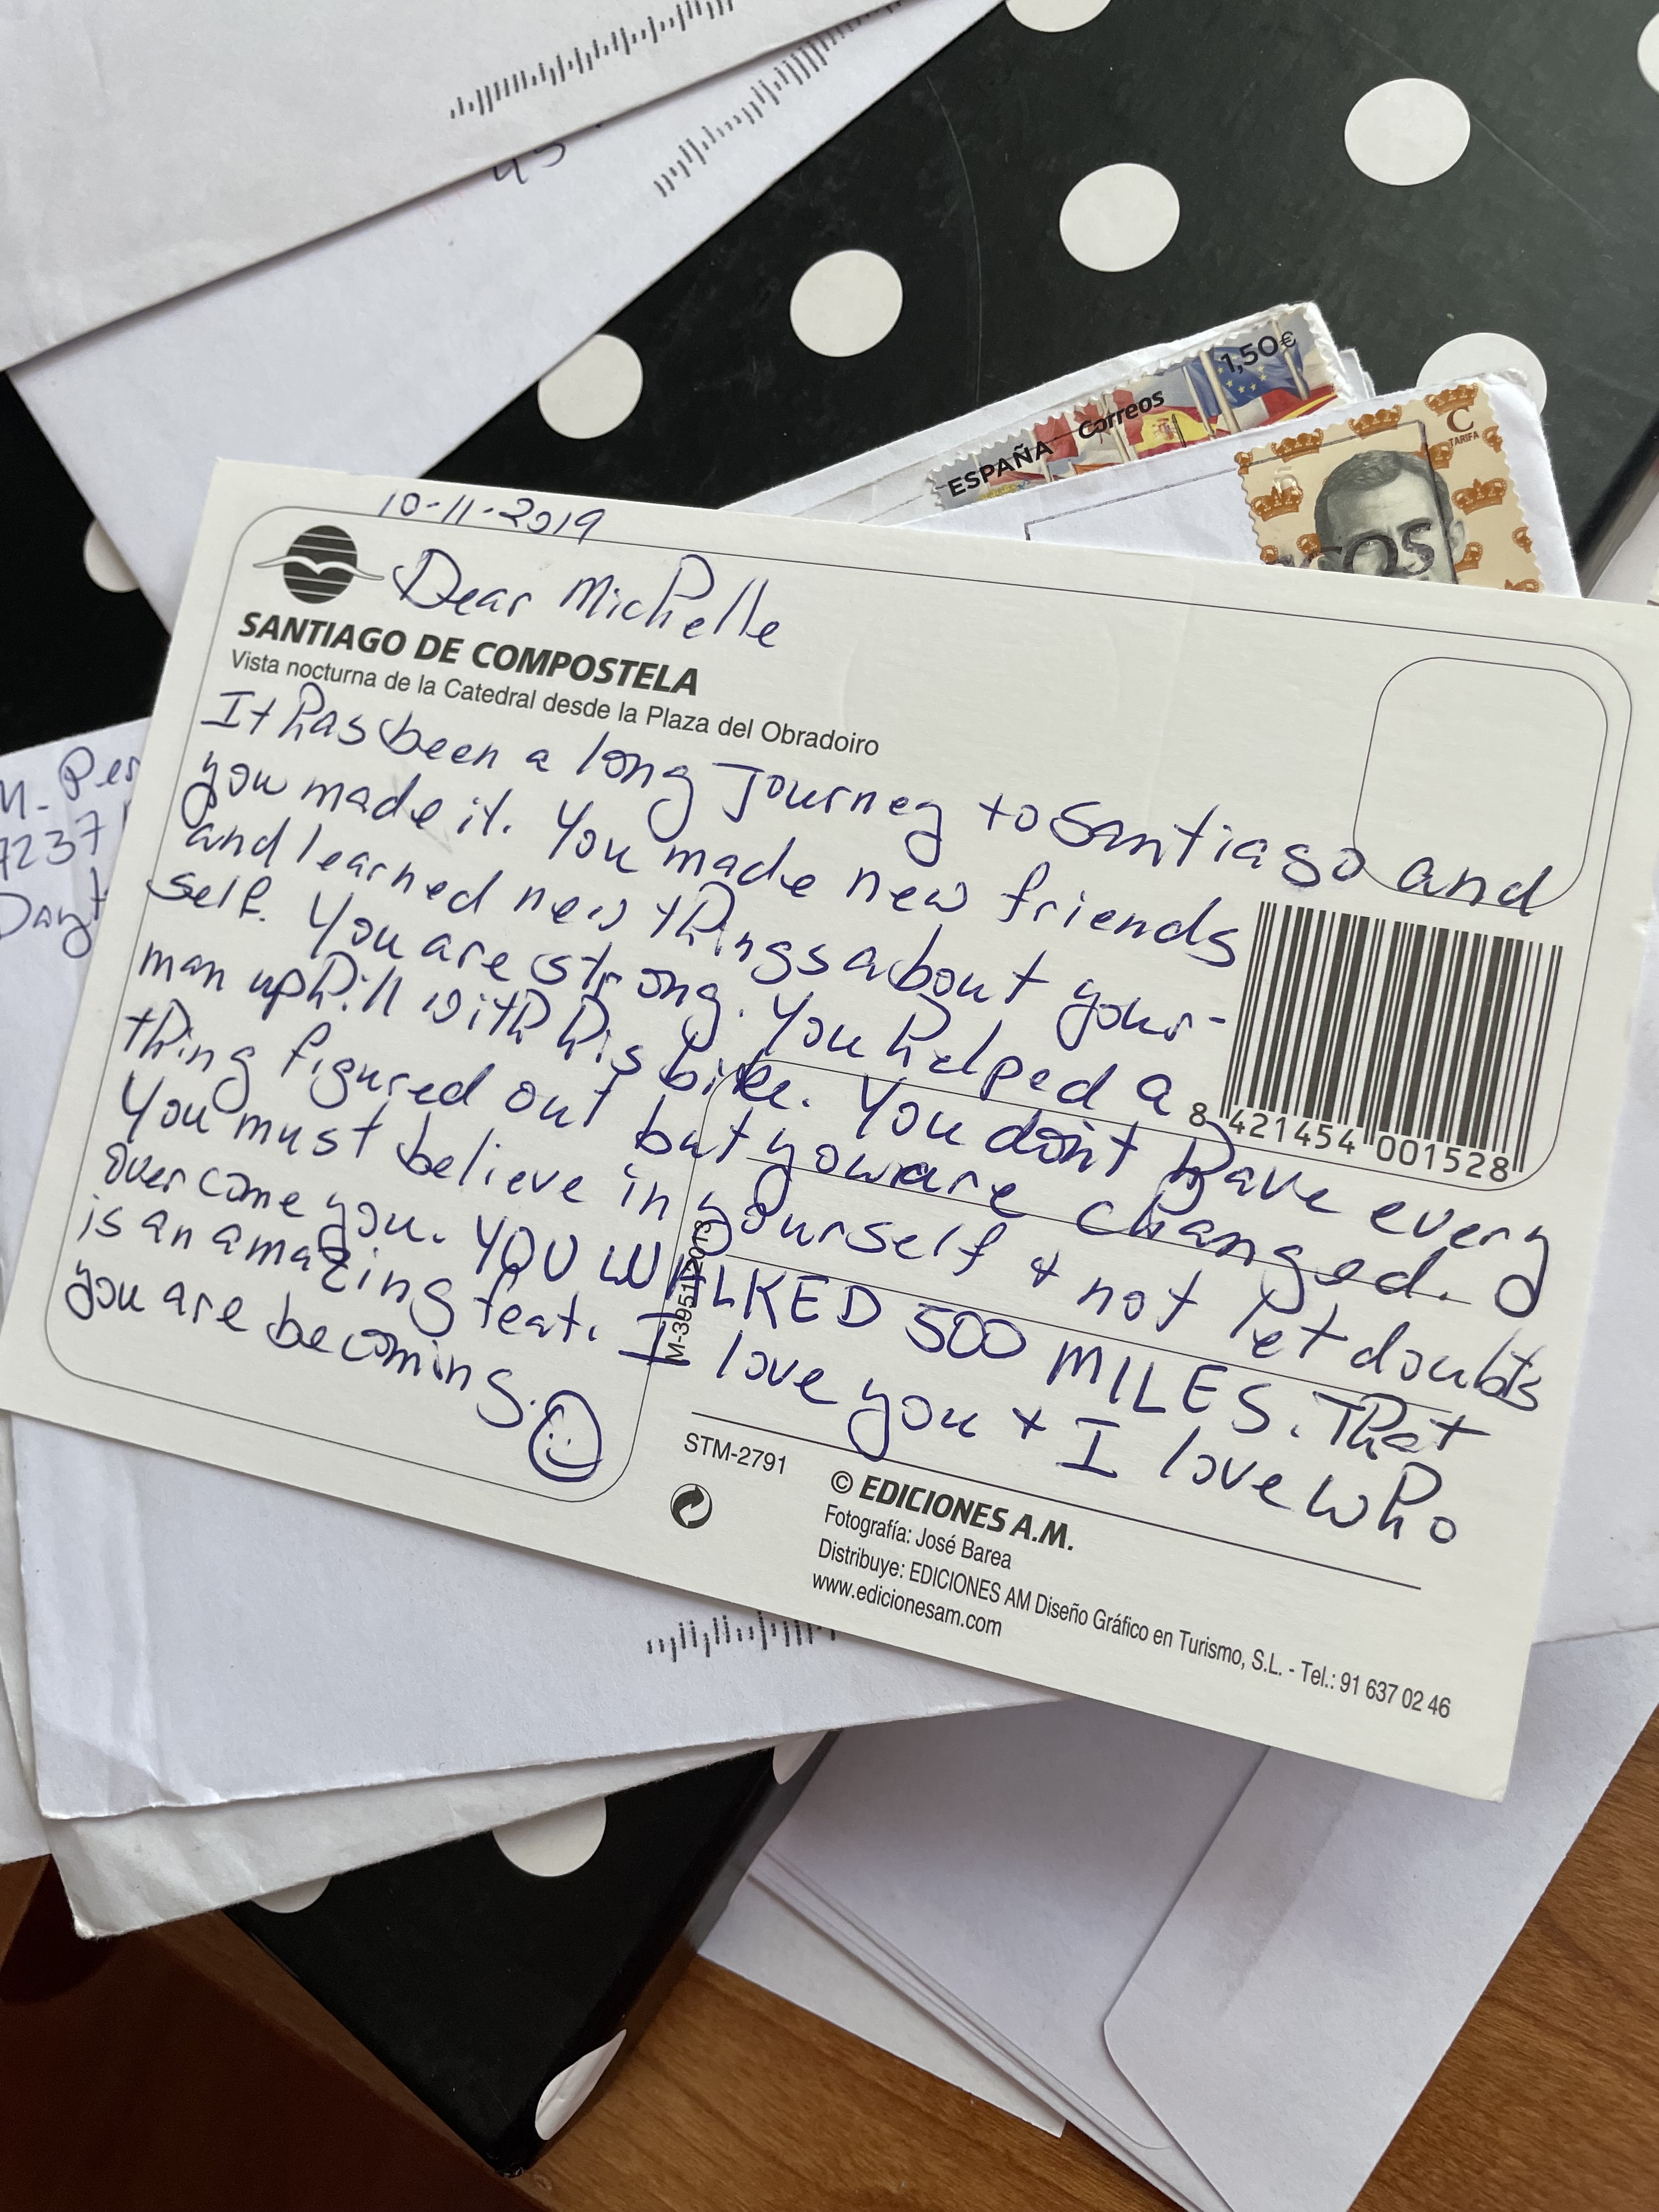 45
ESPAÑA
Correos
1,50€
C
TARIFA
M. Per
7237
Dayt
10-11-2019
Dear Michelle
SANTIAGO DE COMPOSTELA
Vista nocturna de la Catedral desde la Plaza del Obradoiro
It has been a long Journey to Santiago and
you made it. You made new friends
and learned new things about your-
self. You are strong. You helped a
man uphill with his bike. You don't have every
thing figured out but you are changed.
You must believe in yourself + not let doubts
over come you. YOU WALKED 500 MILES. That
is an amazing feat. I love you + I love who
you are becoming.
8 421454 001528
M-3951-2013
STM-2791
© EDICIONES A.M.
Fotografía: José Barea
Distribuye: EDICIONES AM Diseño Gráfico en Turismo, S.L. - Tel.: 91 637 02 46
www.edicionesam.com